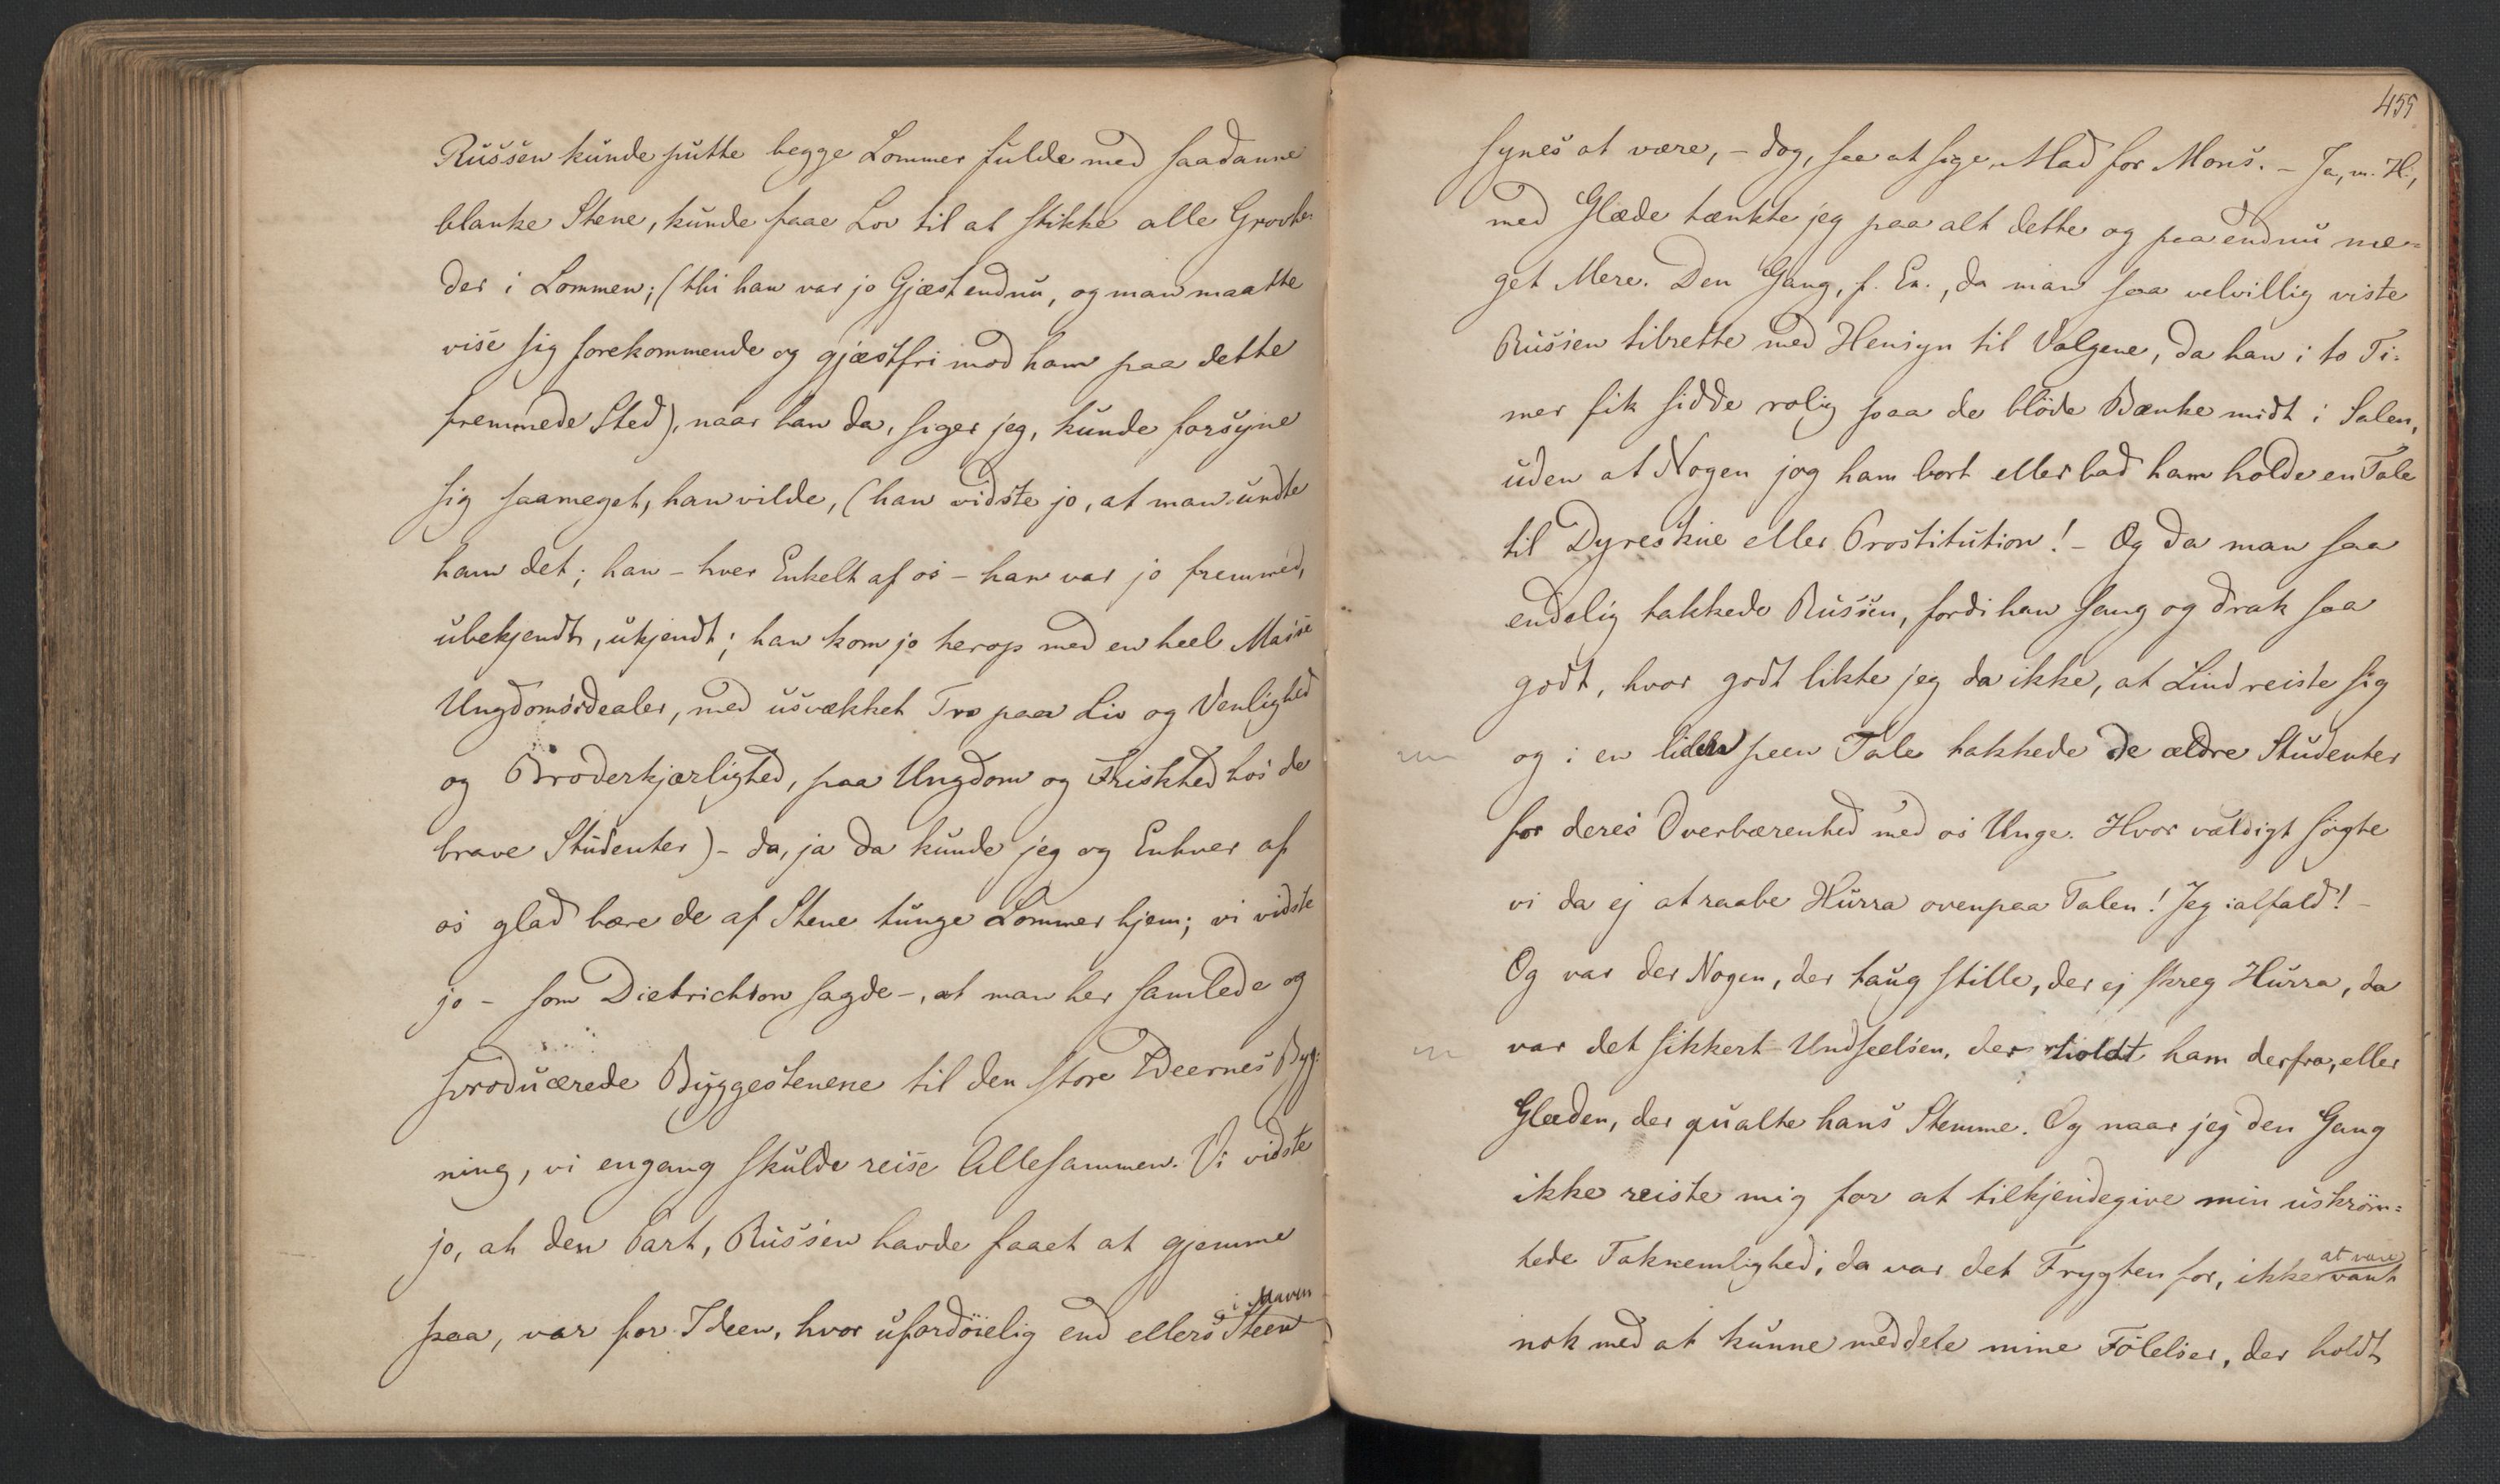 Russen kunde putte begge Lommer fulde med saadanne
blanke Stene, kunde faae Lov til at stikke alle Grovhe-
der i Lommen; (thi han var jo Gjæst endnu, og man maatte
vise sig forekommende og gjæstfri mod ham paa dette
fremmede Sted), naar han da, siger jeg, kunde forsyne
sig saameget, han vilde, (han vidste jo, at man undte
ham det; han - hver Enkelt af os - han var jo fremmed,
ubekjendt, ukjendt; han kom jo herop med en heel Masse
Ungdomsidealer, med usvækket Tro paa Liv og Venlighed
og Broderkjærlighed, paa Ungdom og Friskhed hos de
brave Studenter) - da, ja da kunde jeg og Enhver af
os glad bære de af Stene tunge Lommer hjem; vi vidste
jo - som Dietrichson sagde -, at man her samlede og
producerede Byggestenene til den store Ideernes Byg-
ning, vi engang skulde reise Allesammen. Vi vidste
jo, at den Part, Russen havde faaet at gjemme
paa, var for Ideen, hvor ufordöielig end ellers Steen
i Maven
455
synes at være, - dog, saa at sige, Mad for Mons. - Ja, m. H.,
med Glæde tænkte jeg paa alt dette og paa endnu me-
get Mere. Den Gang, f. Ex., da man saa velvillig viste
Russen tilrette med Hensyn til Valgene, da han i to Ti-
mer fik sidde rolig paa de blöde Bænke midt i Salen,
uden at Nogen jog ham bort eller bad ham holde en Tale
til Dyreskue eller Prostitution! - Og da man saa
endelig takkede Russen, fordi han sang og drak saa
godt, hvor godt likte jeg da ikke, at Lind reiste sig
og i en liden peen Tale takkede de ældre Studenter
for deres Overbærenhed med os Unge. Hvor vældigt søgte
vi da ej at raabe Hurra ovenpaa Talen! Jeg ialfald! -
Og var der Nogen, der taug stille, der ej skreg Hurra, da
var det sikkert Undseelsen, der holdt ham derfra, eller
Glæden, der qualte hans Stemme. Og naar jeg den Gang
ikke reiste mig for at tilkjendegive min uskröm-
tede Taknemlighed, da var det Frygten for, ikke at være vant
nok med at kunne meddele mine Fölelser, der holdt